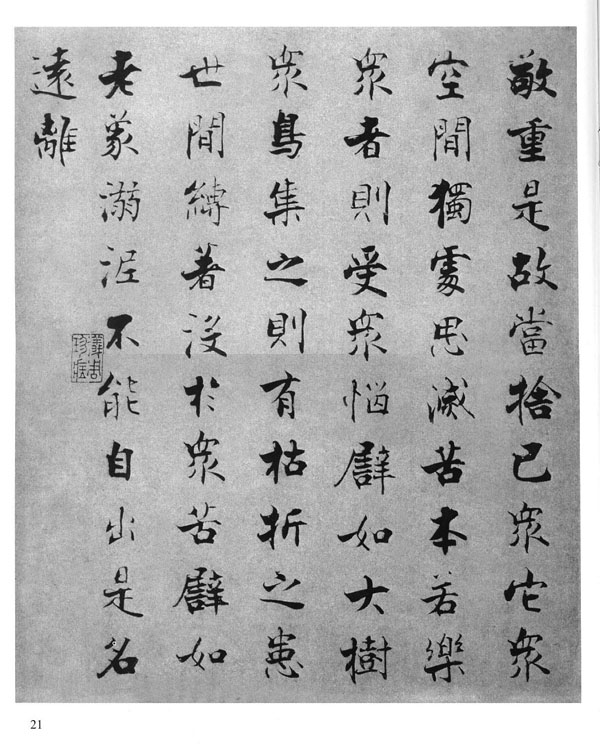 敬重是故當捨己眾它眾
空間獨處思滅苦本若樂
眾者則受眾惱譬如大樹
眾鳥集之則有枯折之患
世間縛著沒於眾苦譬如
老象溺泥不能自出是名
遠離
21